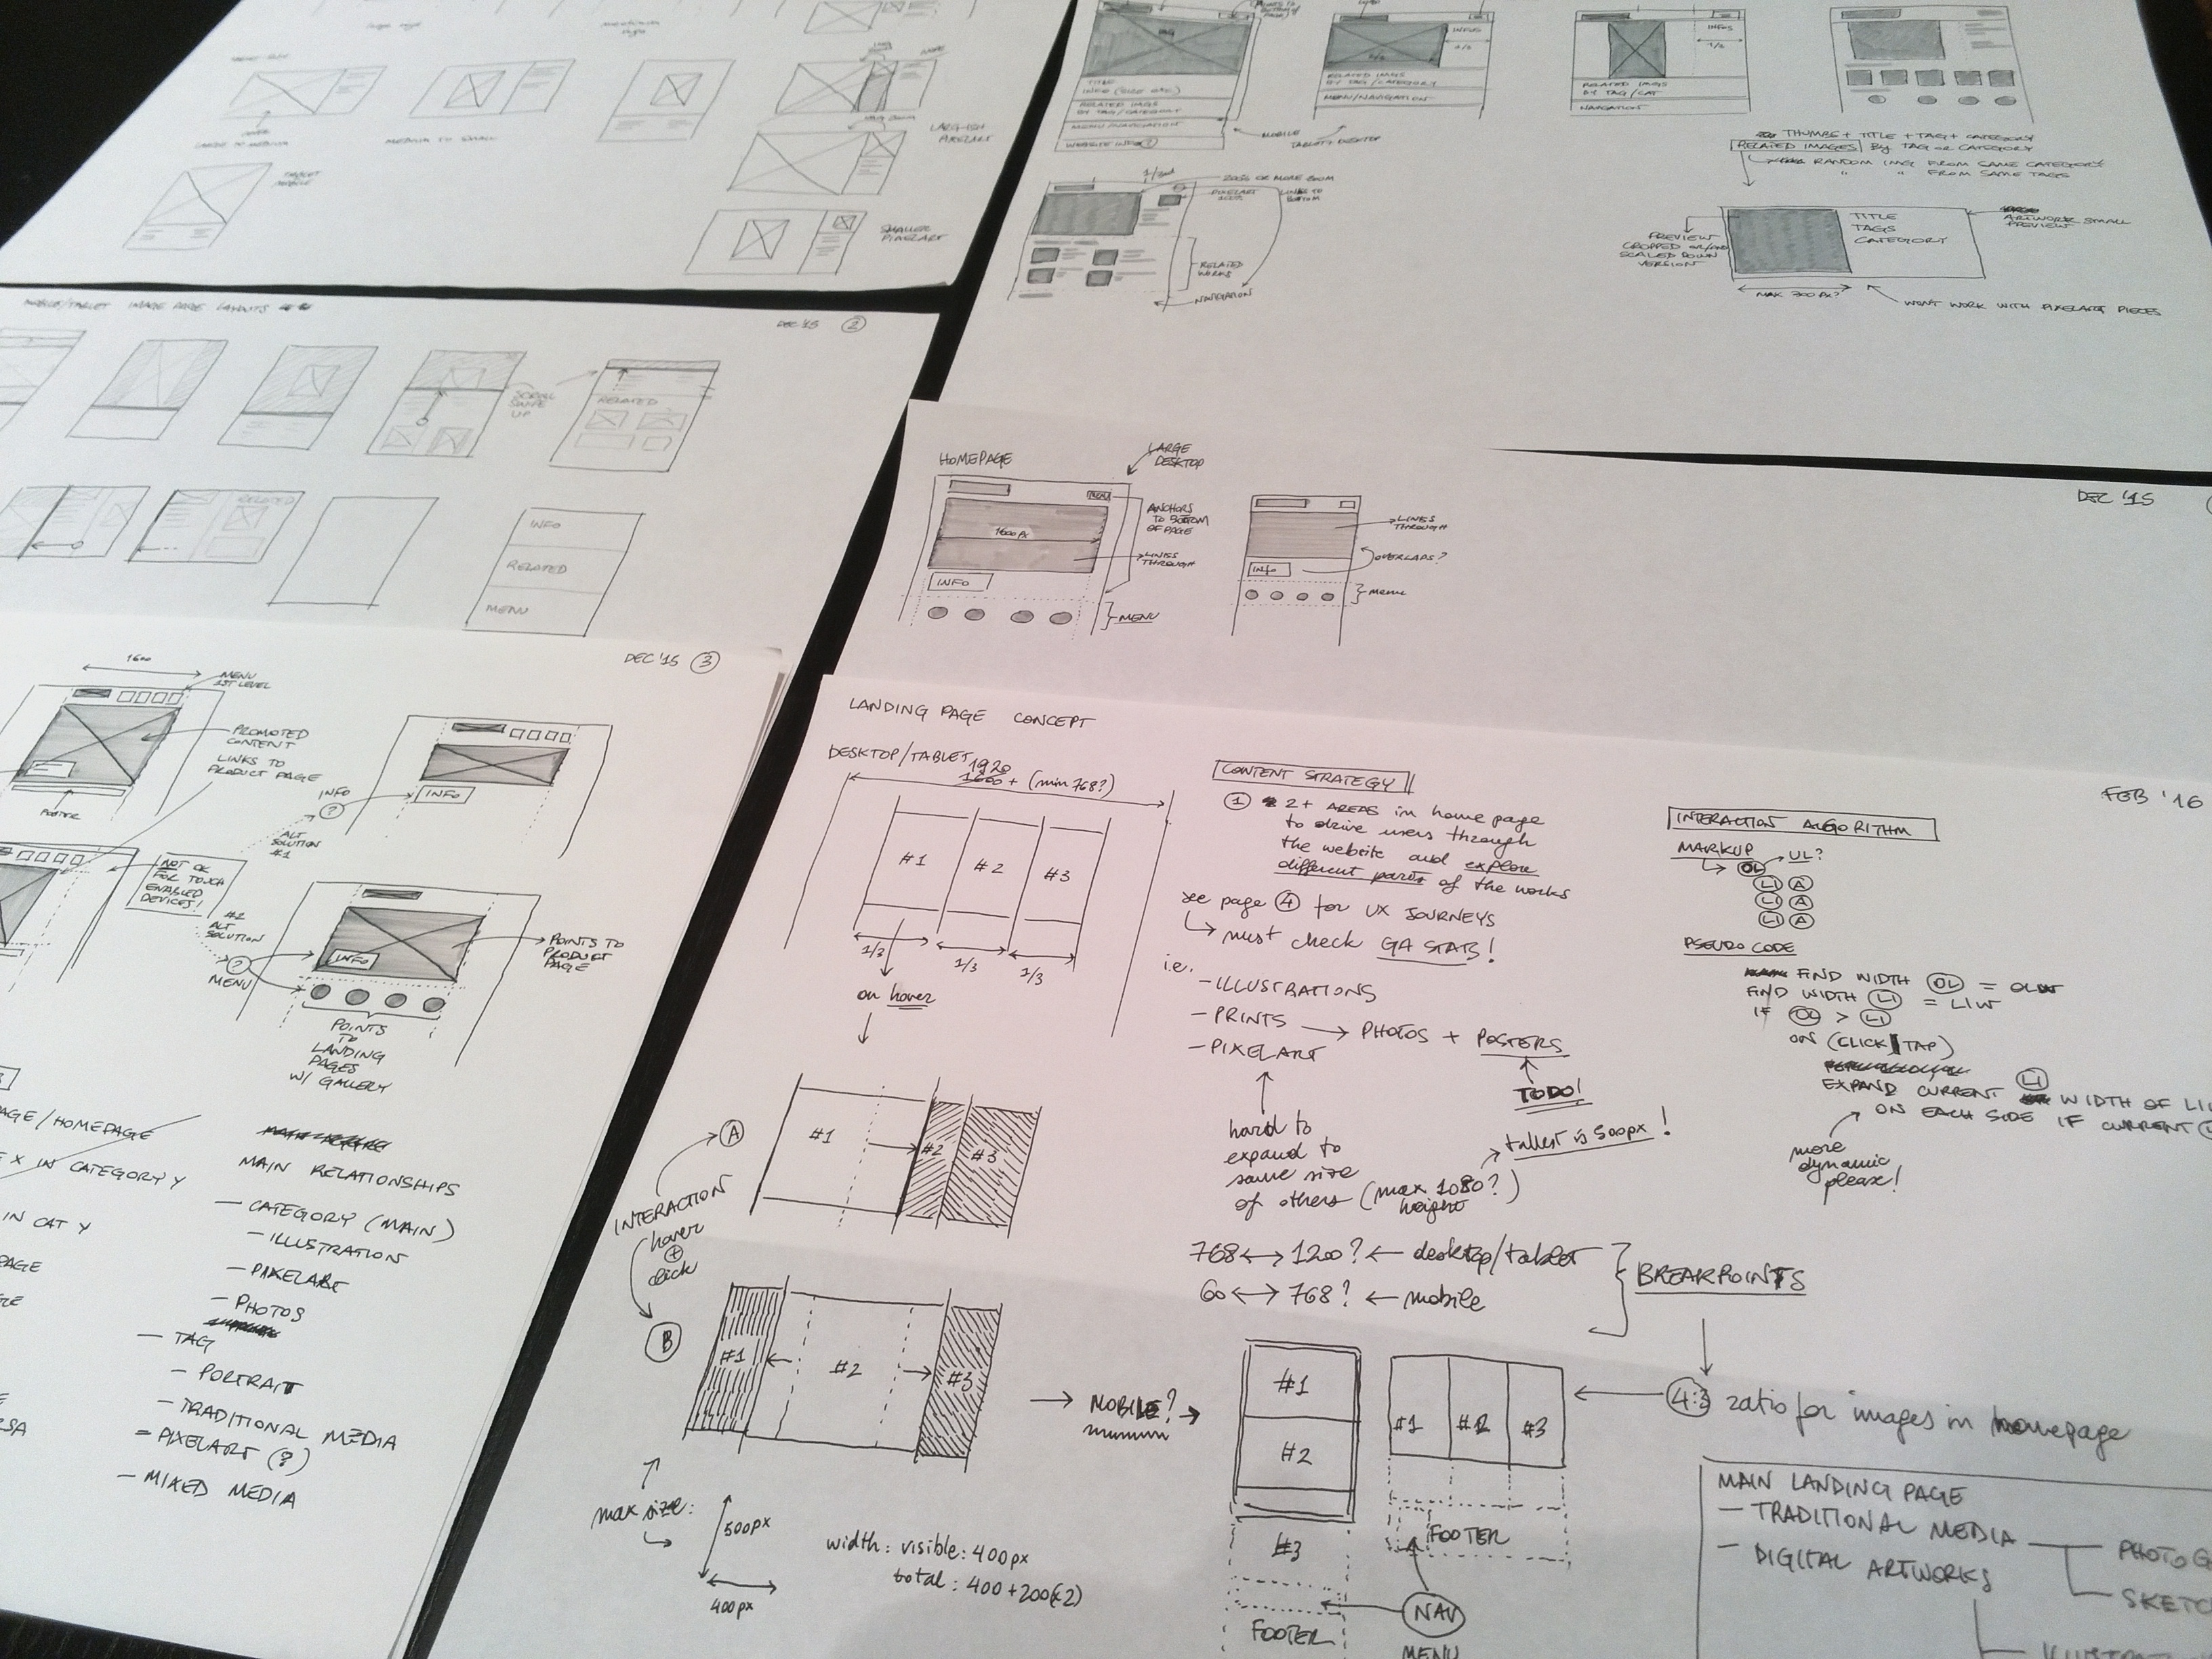 LARG-ISH
PIXELART
SMALLER
PIXELART
MEDIUM TO SMALL
TABLET
MOBILE
TITLE
INFO (SIZE ETC.)
RELATED IMGS
BY TAG/CATEGORY
MENU/NAVIGATION
WEBSITE INFO
MOBILE
TABLET+DESKTOP
INFOS
RELATED IMGS
BY TAG/CATEGORY
MENU/NAVIGATION
INFOS
RELATED IMGS
BY TAG/CAT
NAVIGATION
THUMBS + TITLE + TAG + CATEGORY
RELATED IMAGES BY TAG OR CATEGORY
RANDOM IMG FROM SAME CATEGORY
" " FROM SAME TAGS
200% OR MORE ZOOM
LINKS TO
BOTTOM
RELATED
WORKS
NAVIGATION
PREVIEW
CROPPED
SCALED DOWN
VERSION
TITLE
TAGS
CATEGORY
ARTWORK SMALL
PREVIEW
MAX 700 PX?
WON'T WORK WITH PIXELART PIECES
MOBILE/TABLET IMAGE PAGE LAYOUTS
DEC '15 2
SCROLL
SWIPE
UP
RELATED
RELATED
INFO
RELATED
MENU
HOMEPAGE
LARGE
DESKTOP
MENU
1600 PX
ANCHORS
TO BOTTOM
OF PAGE
LINES
THROUGH
INFO
MENU
LINES
THROUGH
OVERLAPS?
INFO
MENU
DEC '15
DEC '15 3
1600
MENU
1ST LEVEL
PROMOTED
CONTENT
LINKS TO
PRODUCT PAGE
POSTER
INFO
?
INFO
ALT
SOLUTION
#1
NOT OK
FOR TOUCH
ENABLED
DEVICES!
#2
ALT
SOLUTION
?
MENU
INFO
POINTS TO
PRODUCT
PAGE
POINTS
TO
LANDING
PAGES
W/ GALLERY
PAGE/HOMEPAGE
X IN CATEGORY Y
IN CAT Y
MAIN RELATIONSHIPS
- CATEGORY (MAIN)
- ILLUSTRATION
- PIXELART
- PHOTOS
- TAG
- PORTRAIT
- TRADITIONAL MEDIA
- PIXELART (?)
- MIXED MEDIA
LANDING PAGE CONCEPT
DESKTOP/TABLET
1920
1600 + (min 768?)
#1 #2 #3
1/3 1/3 1/3
on hover
INTERACTION
hover
+
click
A
#1 #2 #3
B
#1 #2 #3
max size:
500px
400px
width: visible: 400px
total: 400+200(x2)
FEB '16
CONTENT STRATEGY
1 2+ AREAS in home page
to drive users through
the website and explore
different parts of the works
see page 4 for UX JOURNEYS
must check GA STATS!
i.e.
- ILLUSTRATIONS
- PRINTS → PHOTOS + POSTERS
- PIXELART
TODO!
hard to
expand to
same size
of others (max 1080?
height)
tallest is 500px!
768 ↔ 1200? ← desktop/tablet
60 ↔ 768? ← mobile
BREAKPOINTS
INTERACTION ALGORITHM
MARKUP
OL UL?
LI A
LI A
LI A
PSEUDO CODE
FIND WIDTH OL = OLW
FIND WIDTH LI = LIW
IF OL > LI
ON (CLICK | TAP)
EXPAND CURRENT LI WIDTH OF LI
ON EACH SIDE IF CURRENT
more
dynamic
please!
MOBILE?
#1
#2
#3
FOOTER
#1 #2 #3
FOOTER
NAV
MENU
4:3 ratio for images in homepage
MAIN LANDING PAGE
- TRADITIONAL MEDIA
- DIGITAL ARTWORKS